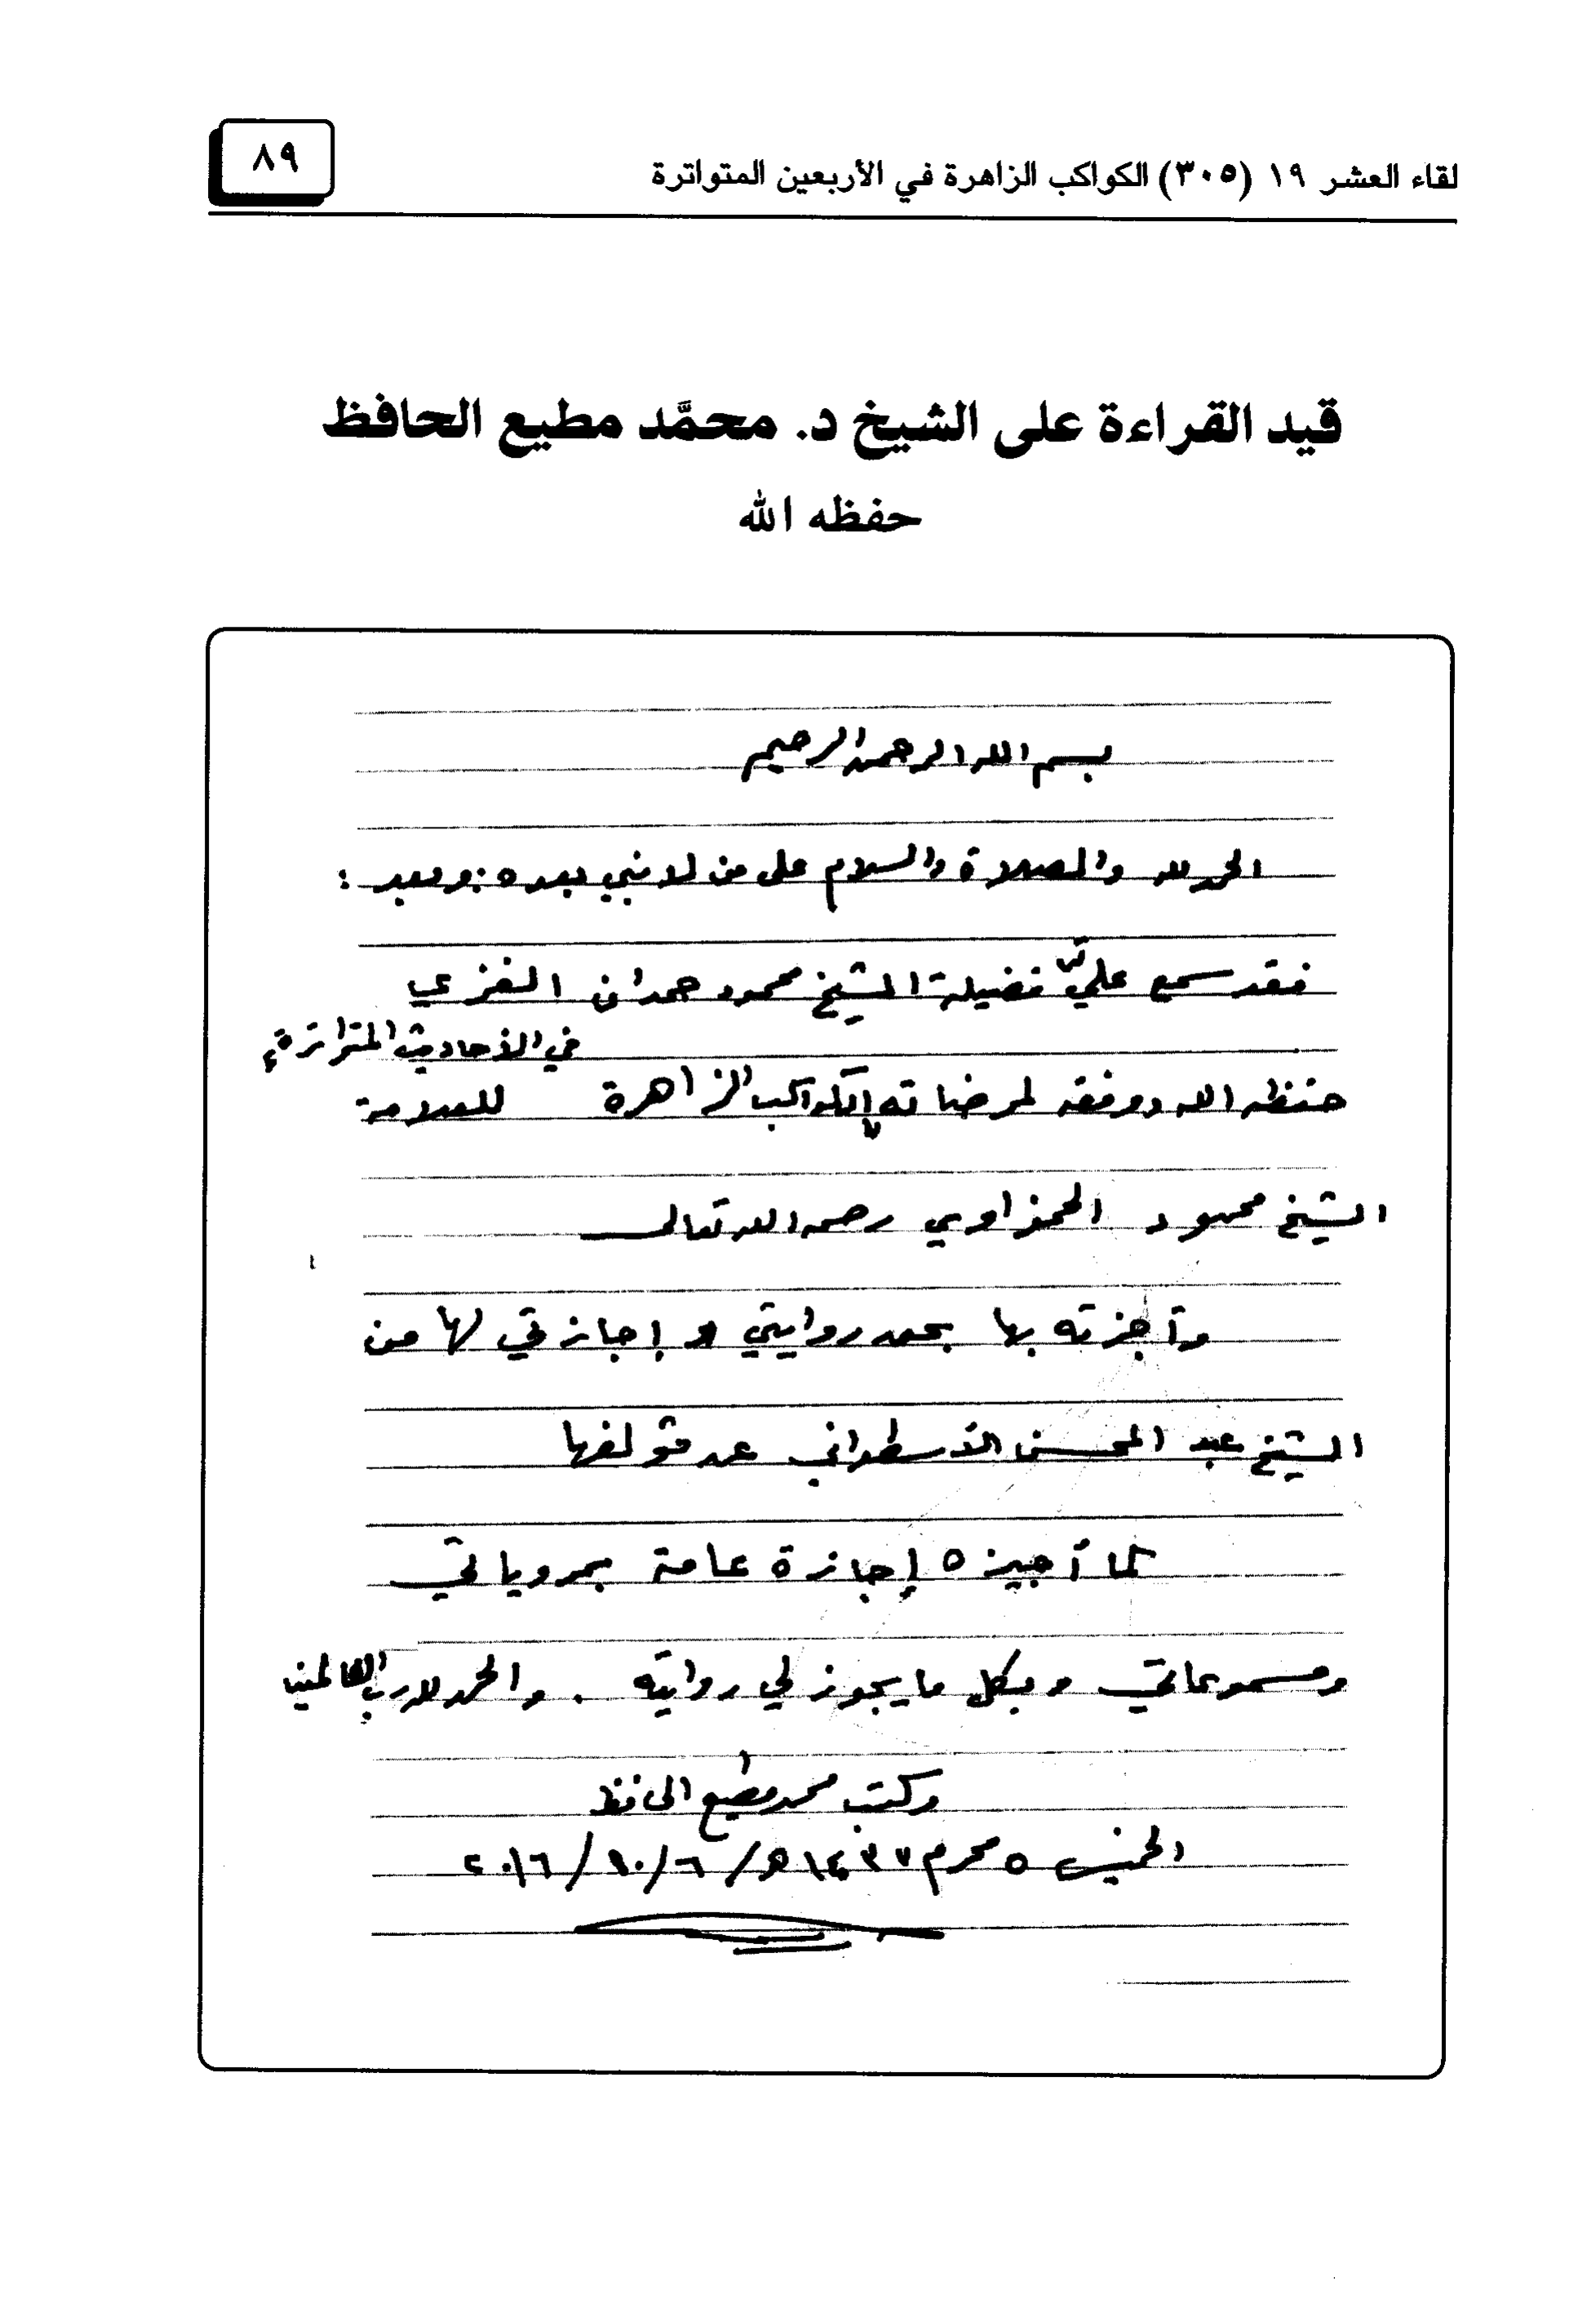 لقاء العشر ١٩ (٣٠٥) الكواكب الزاهرة في الأربعين المتواترة
٨٩
قيد القراءة على الشيخ د. محمَّد مطيع الحافظ
حفظه الله
بسم الله الرحمن الرحيم
الحمد لله والصلاة والسلام على من لا نبي بعده: وبعد:
فقد سمع عليّ فضيلة الشيخ محمود حمدان الغزي
في الأحاديث المتواترة
حفظه الله ووفقه لمرضاته الكواكب الزاهرة للعلامة
الشيخ محمود الحمزاوي رحمه الله تعالى
وأجزته بها بحق روايتي و إجازتي لها من
الشيخ عبد المحسن الأسطواني عن مؤلفها
كما أجيزه إجازة عامة بمروياتي
ومسموعاتي وبكل ما يجوز لي روايته . والحمد لله رب العالمين
وكتب محمد مطيع الحافظ
الخميس ٥ محرم ١٤٣٧ هـ/ ٦/١٠/٢٠١٦